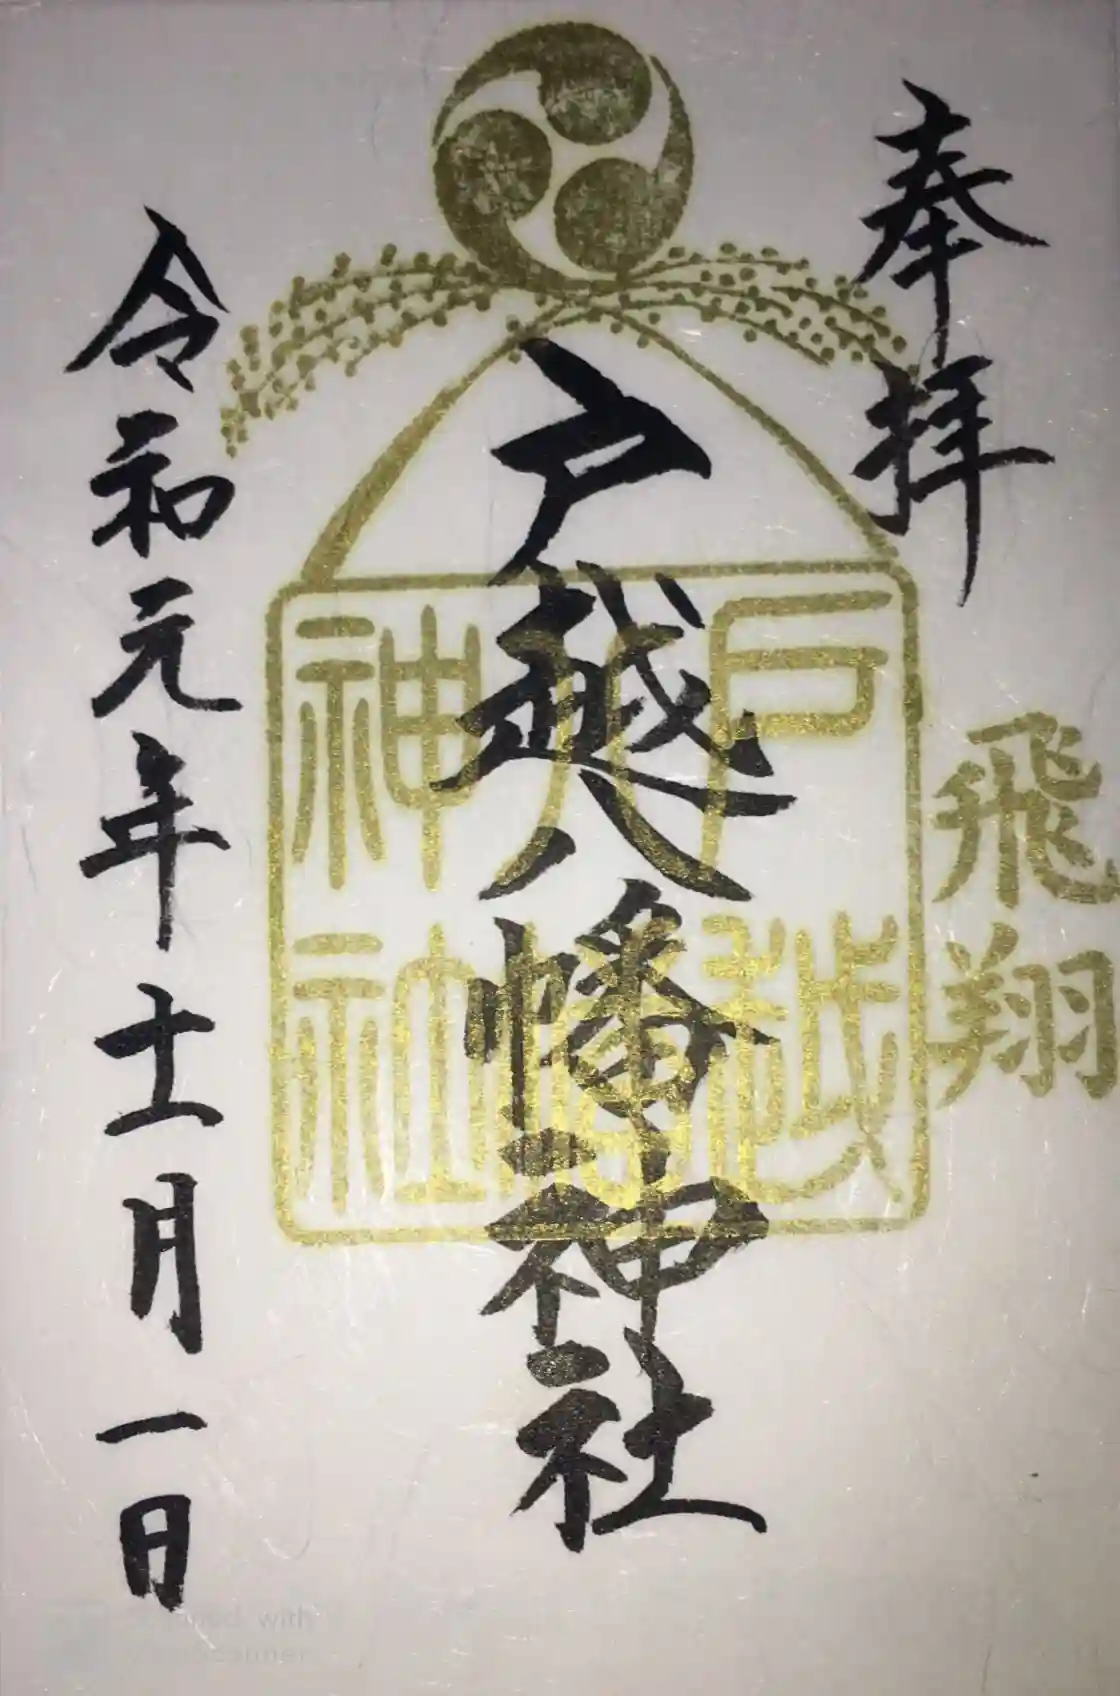 奉拝
飛翔
戸越八幡神社
戸越八幡神社
令和元年十一月一日
with